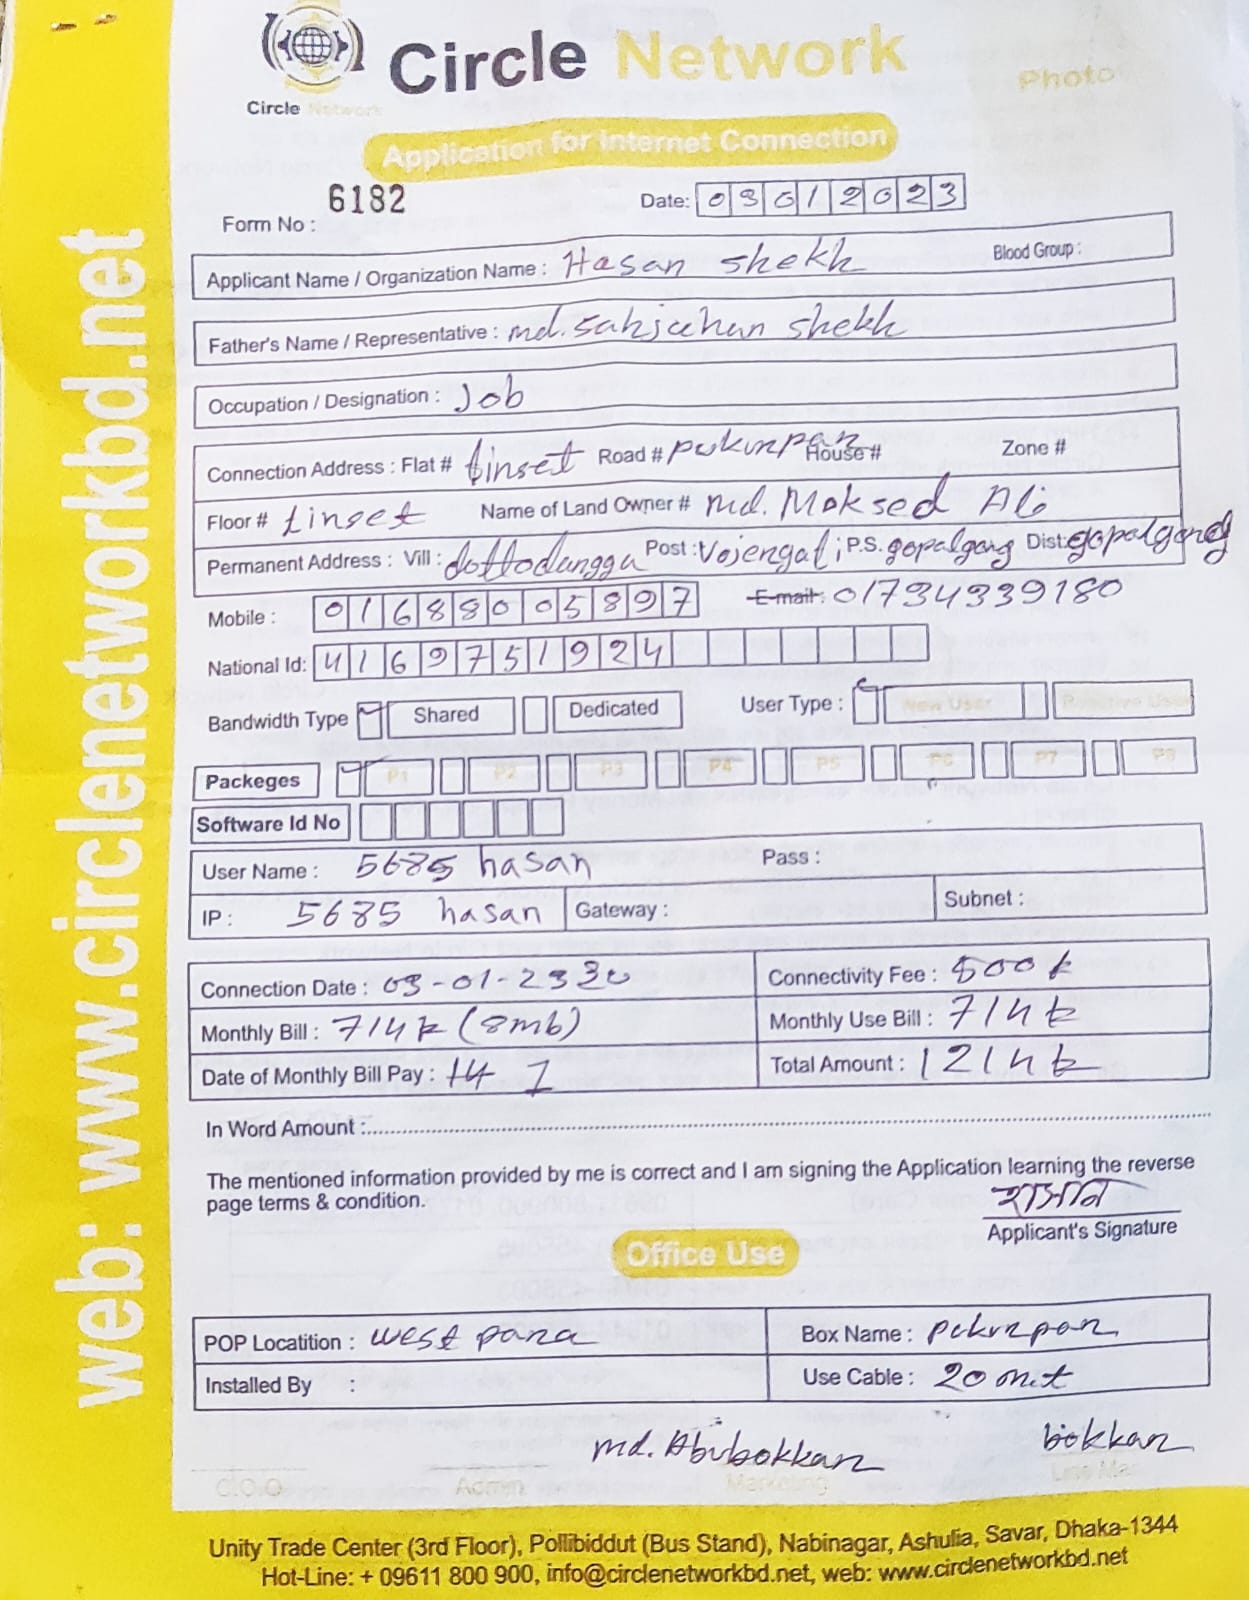 Circle Network
Circle Network
Photo
Application for Internet Connection
Form No : 6182
Date: 03012023
Applicant Name / Organization Name : Hasan Shekh Blood Group :
Father's Name / Representative : md. Sahjahan Shekh
Occupation / Designation : Job
Connection Address : Flat # tinset Road # pukurpar House # Zone #
Floor # tinset Name of Land Owner # md. Moksed Ali
Permanent Address : Vill : dottodangga Post : Vojengati P.S. gopalgang Dist: gopalgong
Mobile : 01688005897 E-mail: 01734339180
National Id: 4169751924
Bandwidth Type Shared Dedicated User Type : New User Reactive User
Packeges P1 P2 P3 P4 P5 P6 P7 P8
Software Id No
User Name : 5685 hasan Pass :
IP : 5685 hasan Gateway : Subnet :
Connection Date : 03-01-23 Connectivity Fee : 500 t
Monthly Bill : 714 t (8mb) Monthly Use Bill : 714 t
Date of Monthly Bill Pay : 1 Total Amount : 1214 t
In Word Amount :
The mentioned information provided by me is correct and I am signing the Application learning the reverse
page terms & condition.
হাসান
Applicant's Signature
Office Use
POP Locatition : west para Box Name : pukurpar
Installed By : Use Cable : 20 mit
md. Abubokkar bokkar
C.O.O Admin Marketing Line Man
Unity Trade Center (3rd Floor), Pollibiddut (Bus Stand), Nabinagar, Ashulia, Savar, Dhaka-1344
Hot-Line: + 09611 800 900, info@circlenetworkbd.net, web: www.circlenetworkbd.net
web: www.circlenetworkbd.net